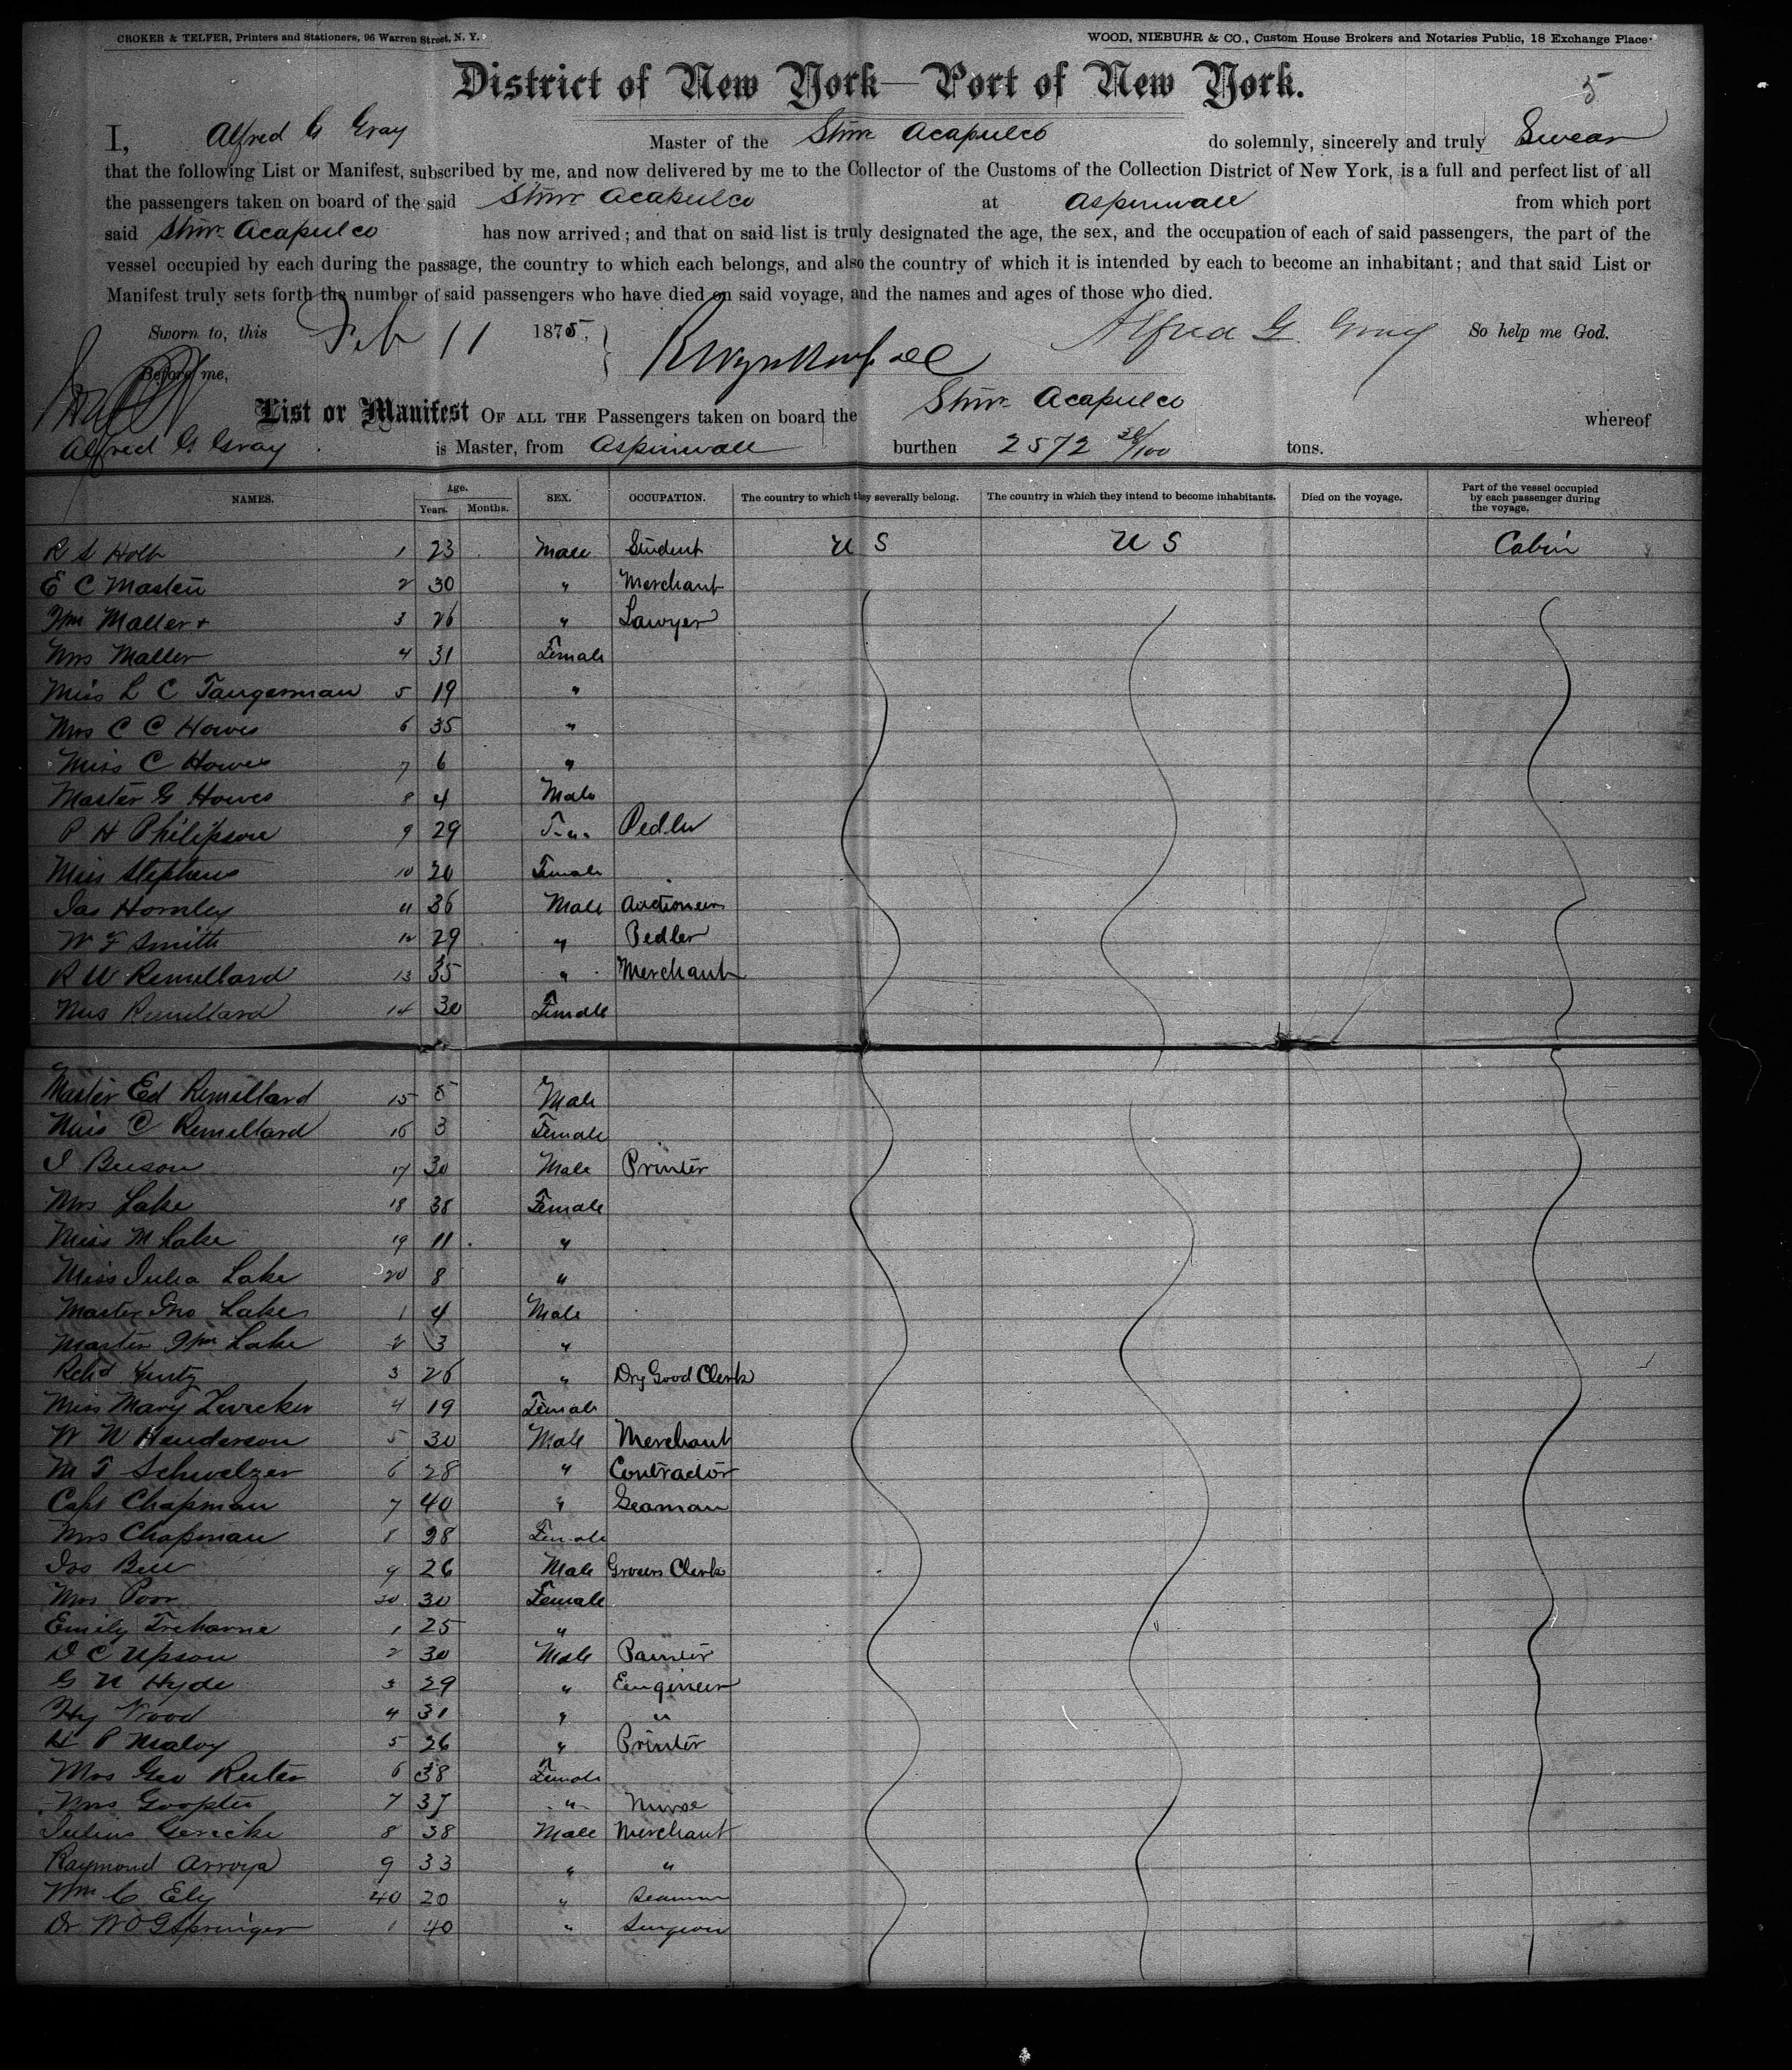 CROKER & TELFER, Printers and Stationers, 96 Warren Street, N. Y. WOOD, NIEBUHR & CO., Custom House Brokers and Notaries Public, 18 Exchange Place.
District of New York—Port of New York.
5
I, Alfred G Gray Master of the Stmr Acapulco do solemnly, sincerely and truly Swear
that the following List or Manifest, subscribed by me, and now delivered by me to the Collector of the Customs of the Collection District of New York, is a full and perfect list of all
the passengers taken on board of the said Stmr Acapulco at Aspinwall from which port
said Stmr Acapulco has now arrived; and that on said list is truly designated the age, the sex, and the occupation of each of said passengers, the part of the
vessel occupied by each during the passage, the country to which each belongs, and also the country of which it is intended by each to become an inhabitant; and that said List or
Manifest truly sets forth the number of said passengers who have died on said voyage, and the names and ages of those who died.
Sworn to, this Feb 11 1875, Alfred G. Gray So help me God.
Before me,
List or Manifest OF ALL THE Passengers taken on board the Stmr Acapulco whereof
Alfred G Gray is Master, from Aspinwall burthen 2572 /100 tons.
NAMES. Age. Years. Months. SEX. OCCUPATION. The country to which they severally belong. The country in which they intend to become inhabitants. Died on the voyage. Part of the vessel occupied by each passenger during the voyage.
R S Holt 1 23 Male Student U S U S Cabin
E C Masten 2 30 " Merchant
Wm Maller + 3 26 " Lawyer
Mrs Maller 4 31 Female
Miss L C Tangerman 5 19 "
Mrs C C Howes 6 35 "
Miss C Howes 7 6 "
Master G Howes 8 4 Male
P H Philipson 9 29 Pedler
Miss Stephens 10 20 Female
Jas Hornley 11 36 Male Auctioneer
W F Smith 12 29 " Pedler
R W Remillard 13 35 " Merchant
Mrs Remillard 14 30 Female
Master Ed Remillard 15 5 Male
Miss C Remillard 16 3 Female
I Beeson 17 30 Male Printer
Mrs Lake 18 38 Female
Miss M Lake 19 11 "
Miss Julia Lake 20 8 "
Master Jno Lake 1 4 Male
Master Wm Lake 2 3 "
Rchd 3 26 " Dry Good Clerk
Miss Mary 4 19 Female
W W Henderson 5 30 Male Merchant
M T Schwelzer 6 28 " Contractor
Capt Chapman 7 40 " Seaman
Mrs Chapman 8 28 Female
Jos Bell 9 26 Male Grocers Clerk
Mrs Poor 30 30 Female
Emily Treharne 1 25 "
D C Upson 2 30 Male Painter
G N Hyde 3 29 " Engineer
Hy Wood 4 31 " "
H P Maloy 5 26 " Printer
Mrs Geo Reuter 6 38 Female
Mrs 7 37 " Nurse
Julius Gericke 8 38 Male Merchant
Raymond Arroya 9 33 " "
Wm C Ely 40 20 " Seaman
Dr W O G Springer 1 40 " Surgeon